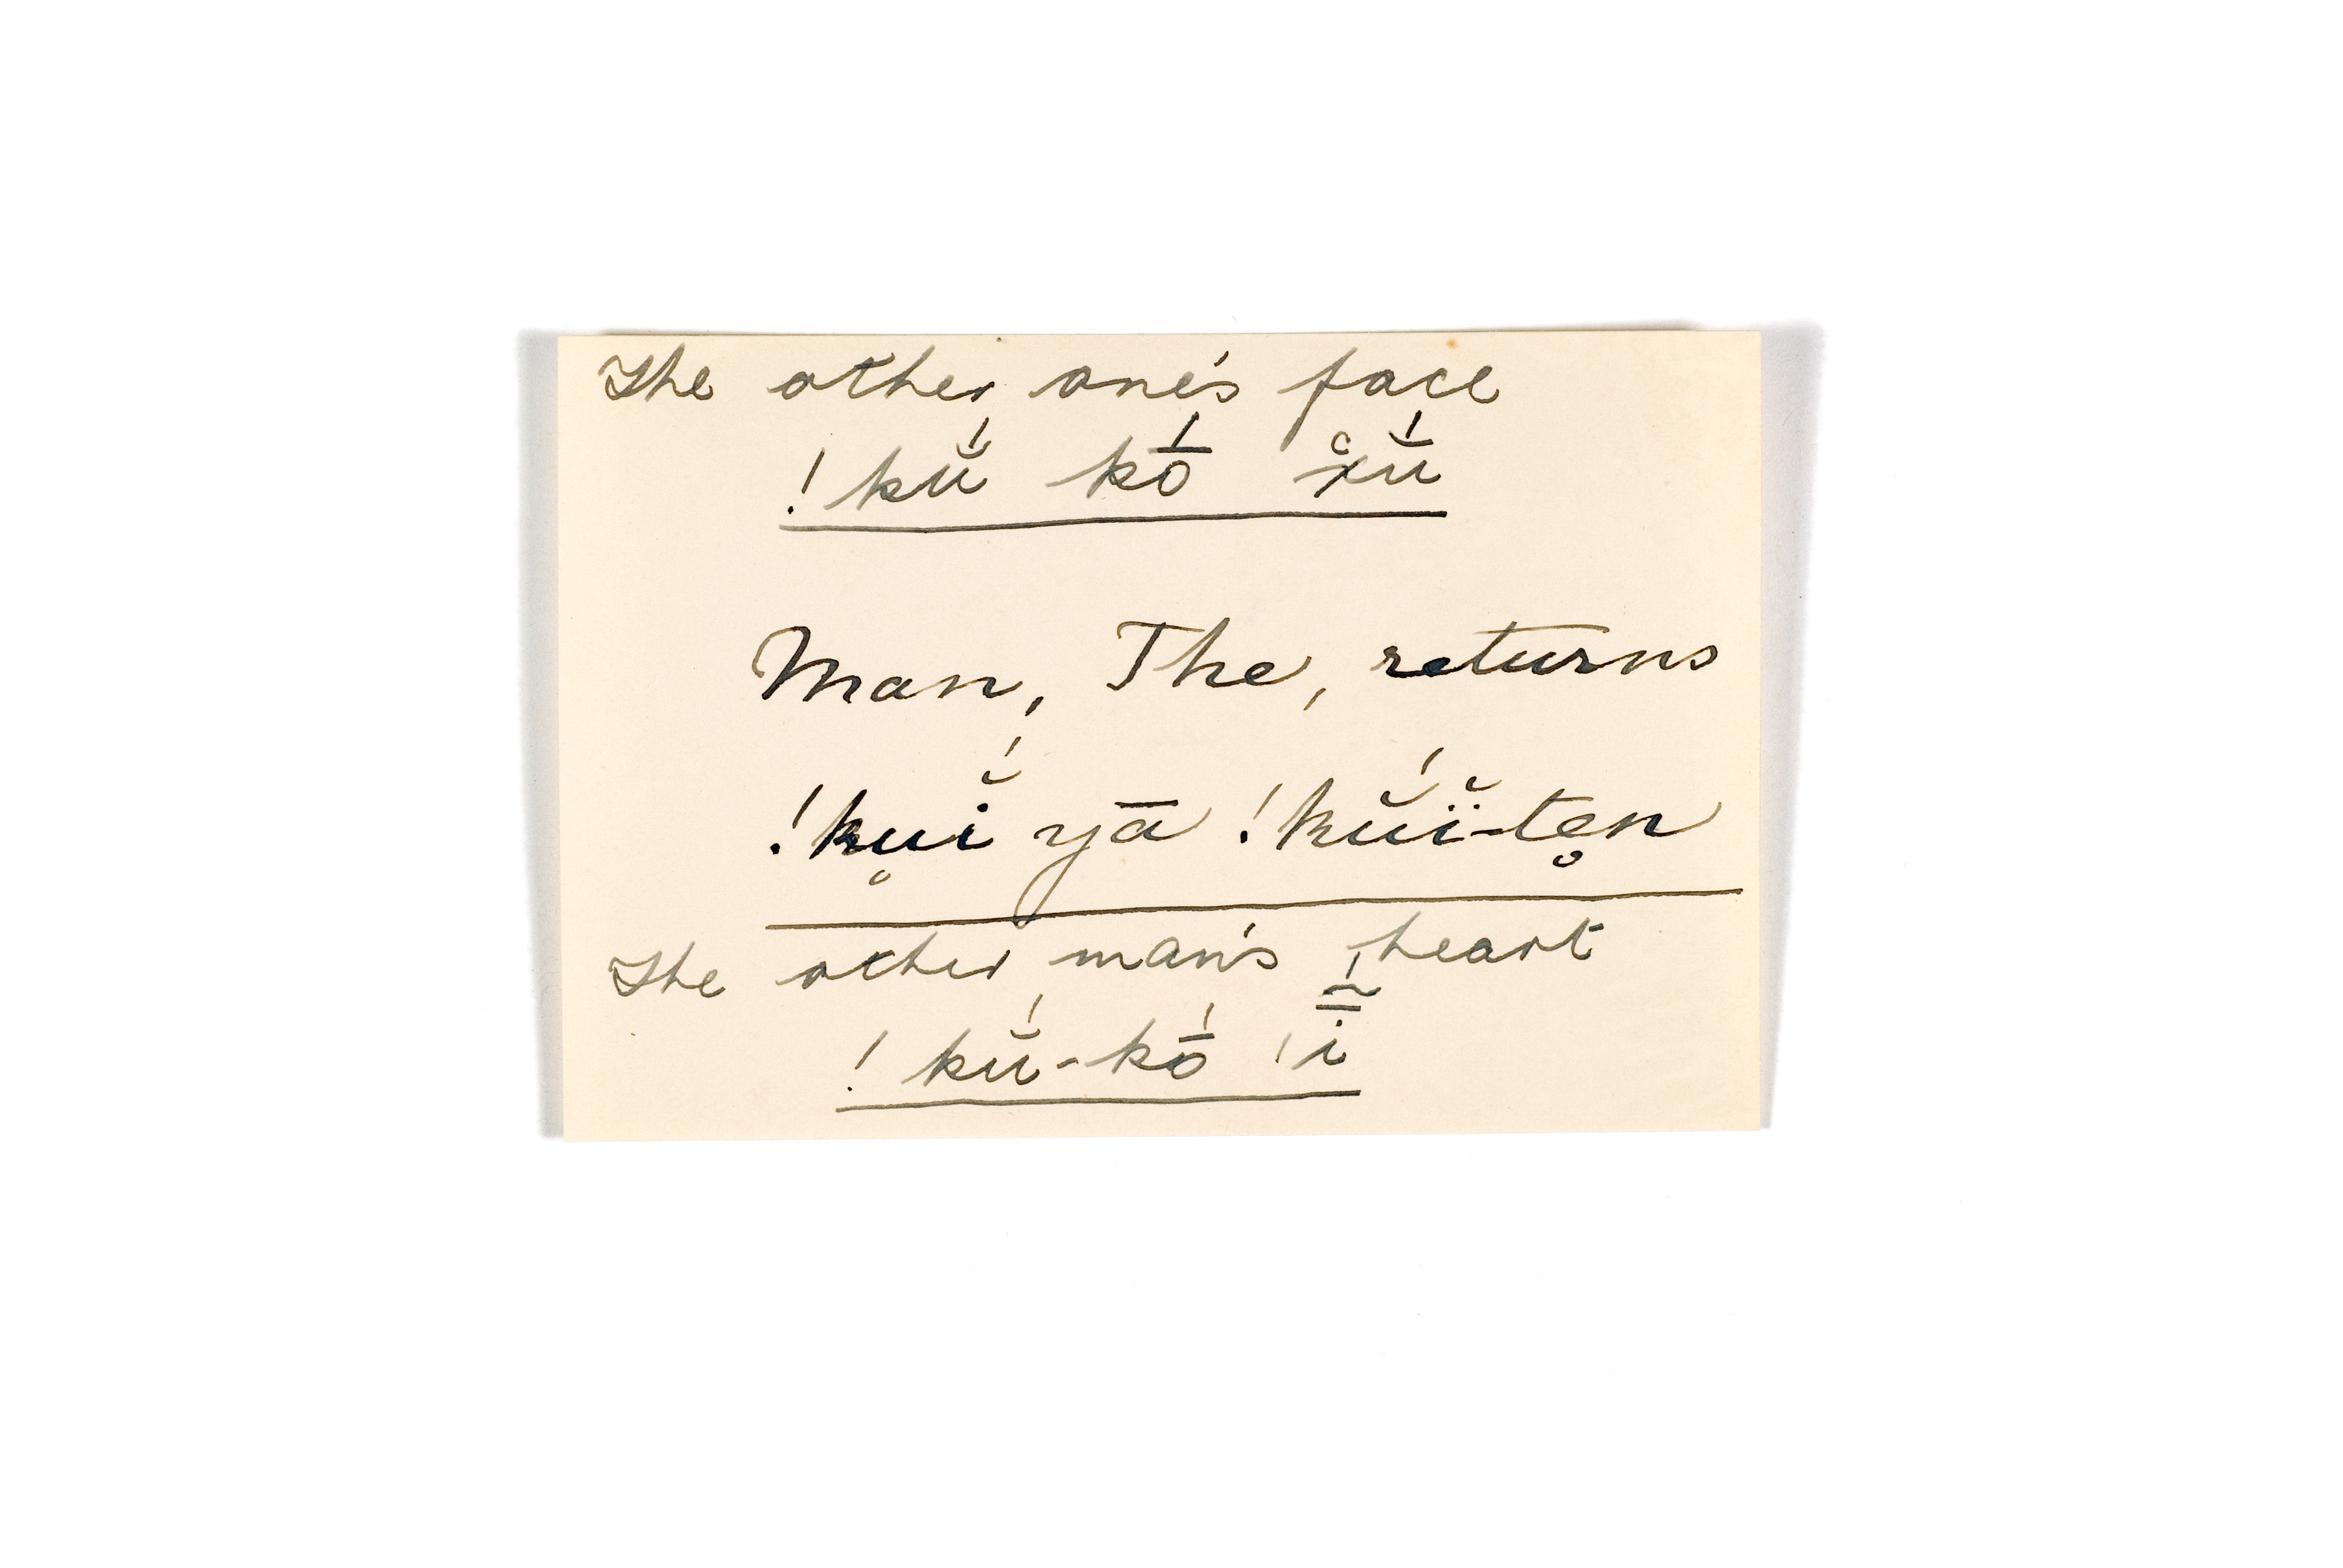 The other one's face
!kŭ́ kṓ x̊ŭ́
Man, The, returns
!ku̥ĭ́ yā !kŭ́ï̆-te̥n
The other man's heart
!kŭ́-kṓ ǀī̃́